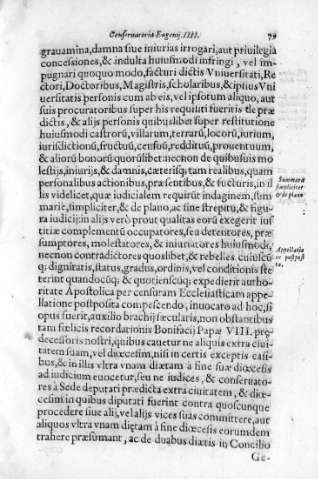 Conseruatoria Eugenij. IIII. 79
grauamina, damna siue iniurias irrogari, aut priuilegia
concessiones, & indulta huiusmodi infringi, vel im-
pugnari quoquo modo, facturi dictis Vniuersitati, Re
ctori, Doctoribus, Magistris, scholaribus, & ipsius Vni
uersitatis personis cum ab eis, vel ipsorum aliquo, aut
suis procuratoribus super his requisiti fueritis tã præ
dictis, & alijs personis quibuslibet super restitutione
huiusmodi castrorũ, villarum, terrarũ, locorũ, iurium,
iurisdictionũ, fructuũ, censuũ, reddituũ, prouentuum,
& aliorũ bonorũ quorũlibet: necnon de quibusuis mo
lestijs, iniurijs, & damnis, cæterisq; tam realibus, quam
personalibus actionibus, præsentibus, & futuris, in il
lis videlicet, quæ iudicialem requirũt indaginem, sum
marie, simpliciter, & de plano, ac sine strepitu, & figu-
ra iudicij: in alijs verò prout qualitas eorũ exegerit ius
titiæ complementũ occupatores, seu detentores, præ
sumptores, molestatores, & iniuriatores huiusmodi,
necnon contradictores quoslibet, & rebelles cuiuscũ
q; dignitatis, status, gradus, ordinis, vel conditionis ste
terint quandocũq; & quotiescũq; expedierit autho-
ritate Apostolica per censuram Ecclesiasticam appe-
llatione postposita compescendo, inuocato ad hoc, si
opus fuerit, auxilio brachij sæcularis, non obstantibus
tam fœlicis recordationis Bonifacij Papæ VIII. præ
decessoris nostri, quibus cauetur ne aliquis extra ciui-
tatem suam, vel diœcesim, nisi in certis exceptis casi-
bus, & in illis vltra vnam diætam à fine suæ diœcesis
ad iudicium euocetur, seu ne iudices, & conseruato-
res à Sede deputati prædicta extra ciuitatem, & diœ-
cesim in quibus deputati fuerint contra quoscunque
procedere siue alij, vel alijs vices suas committere, aut
aliquos vltra vnam diętam à fine diœcesis eorumdem
trahere præsumant, ac de duabus diætis in Concilio
Ge-
Summariè
simpliciter
& de plano
Appellatio
ne postposi
ta.